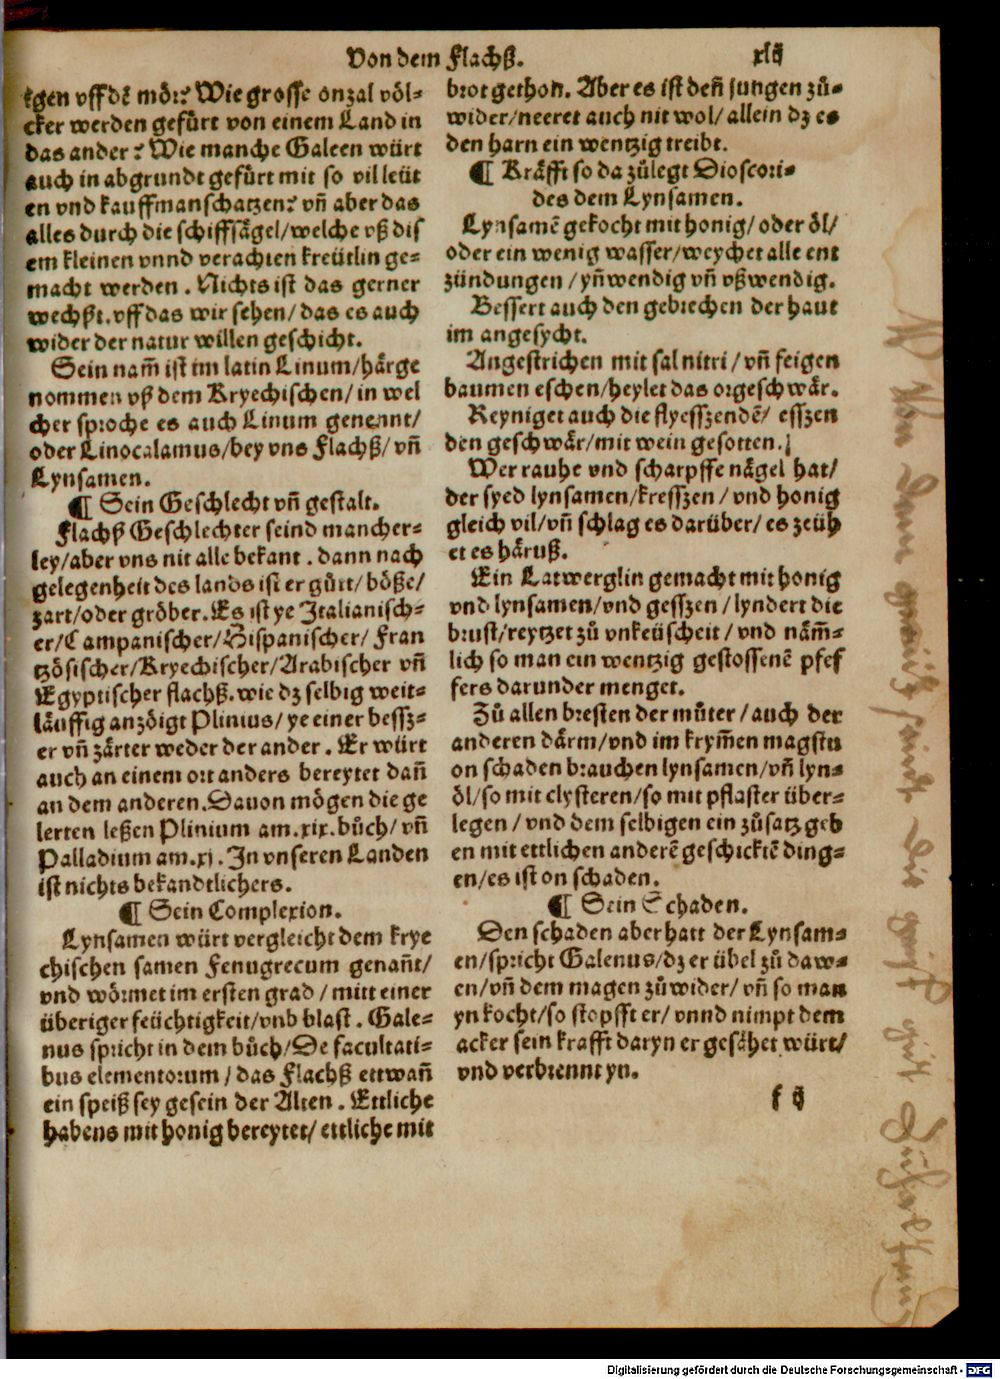 Von dem Flachß.
xlij
tgen vff dē mör? Wie grosse onzal völ-
cker werden gefürt von einem Land in
das ander? Wie manche Galeen würt
auch in abgrundt gefürt mit so vil leüt
en vnd kauffmanschatzen? vñ aber das
alles durch die schiffsägel/welche vß dis
em kleinen vnnd verachten kreütlin ge-
macht werden. Nichts ist das gerner
wechßt. vff das wir sehen/das es auch
wider der natur willen geschicht.
Sein nam̄ ist im latin Linum/härge
nommen vß dem Kryechischen/in wel
cher sproche es auch Linum genennt/
oder Linocalamus/bey vns Flachß/vñ
Lynsamen.
¶ Sein Geschlecht vñ gestalt.
Flachß Geschlechter seind mancher-
ley/aber vns nit alle bekant. dann nach
gelegenheit des lands ist er gůtt/böße/
zart/oder gröber. Es ist ye Italianisch-
er/Campanischer/Hispanischer/Fran
tzösischer/Kryechischer/Arabischer vñ
Egyptischer flachß. wie dz selbig weit-
läuffig anzöigt Plinius/ye einer bessz-
er vñ zärter weder der ander. Er würt
auch an einem ort anders bereytet dañ
an dem anderen. Dauon mögen die ge
lerten leßen Plinium am.xix. bůch/vñ
Palladium am.xj. In vnseren Landen
ist nichts bekandtlichers.
¶ Sein Complexion.
Lynsamen würt vergleicht dem krye
chischen samen Fenugrecum genañt/
vnd wörmet im ersten grad/mitt einer
überiger feüchtigkeit/vnb blast. Gale-
nus spricht in dem bůch/De facultati-
bus elementorum/das Flachß ettwañ
ein speiß sey gesein der Alten. Ettliche
habens mit honig bereytet/ettliche mit
brot gethon. Aber es ist deñ jungen zů-
wider/neeret auch nit wol/allein dz es
den harn ein wentzig treibt.
¶ Kräfft so da zůlegt Dioscori-
des dem Lynsamen.
Lynsamē gekocht mit honig/oder öl/
oder ein wenig wasser/weychet alle ent
zündungen/yñwendig vñ vßwendig.
Bessert auch den gebrechen der haut
im angesycht.
Angestrichen mit sal nitri/vñ feigen
baumen eschen/heylet das orgeschwär.
Reyniget auch die flyesszendē/esszen
den geschwär/mit wein gesotten.
Wer rauhe vnd scharpffe nägel hat/
der syed lynsamen/kresszen/vnd honig
gleich vil/vñ schlag es darüber/es zeüh
et es häruß.
Ein Latwerglin gemacht mit honig
vnd lynsamen/vnd gesszen/lyndert die
brust/reytzet zů vnkeüscheit/vnd näm̄-
lich so man ein wentzig gestossenē pfef
fers darunder menget.
Zů allen bresten der můter/auch der
anderen därm/vnd im krym̄en magstu
on schaden brauchen lynsamen/vñ lyn-
öl/so mit clysteren/so mit pflaster über-
legen/vnd dem selbigen ein zůsatz geb
en mit ettlichen anderē geschicktē ding-
en/es ist on schaden.
¶ Sein Schaden.
Den schaden aber hatt der Lynsam-
en/spricht Galenus/dz er übel zů daw-
en/vñ dem magen zůwider/vñ so man
yn kocht/so stopfft er/vnnd nimpt dem
acker sein krafft daryn er gesähet würt/
vnd verbrennt yn.
f ij
Digitalisierung gefördert durch die Deutsche Forschungsgemeinschaft - DFG